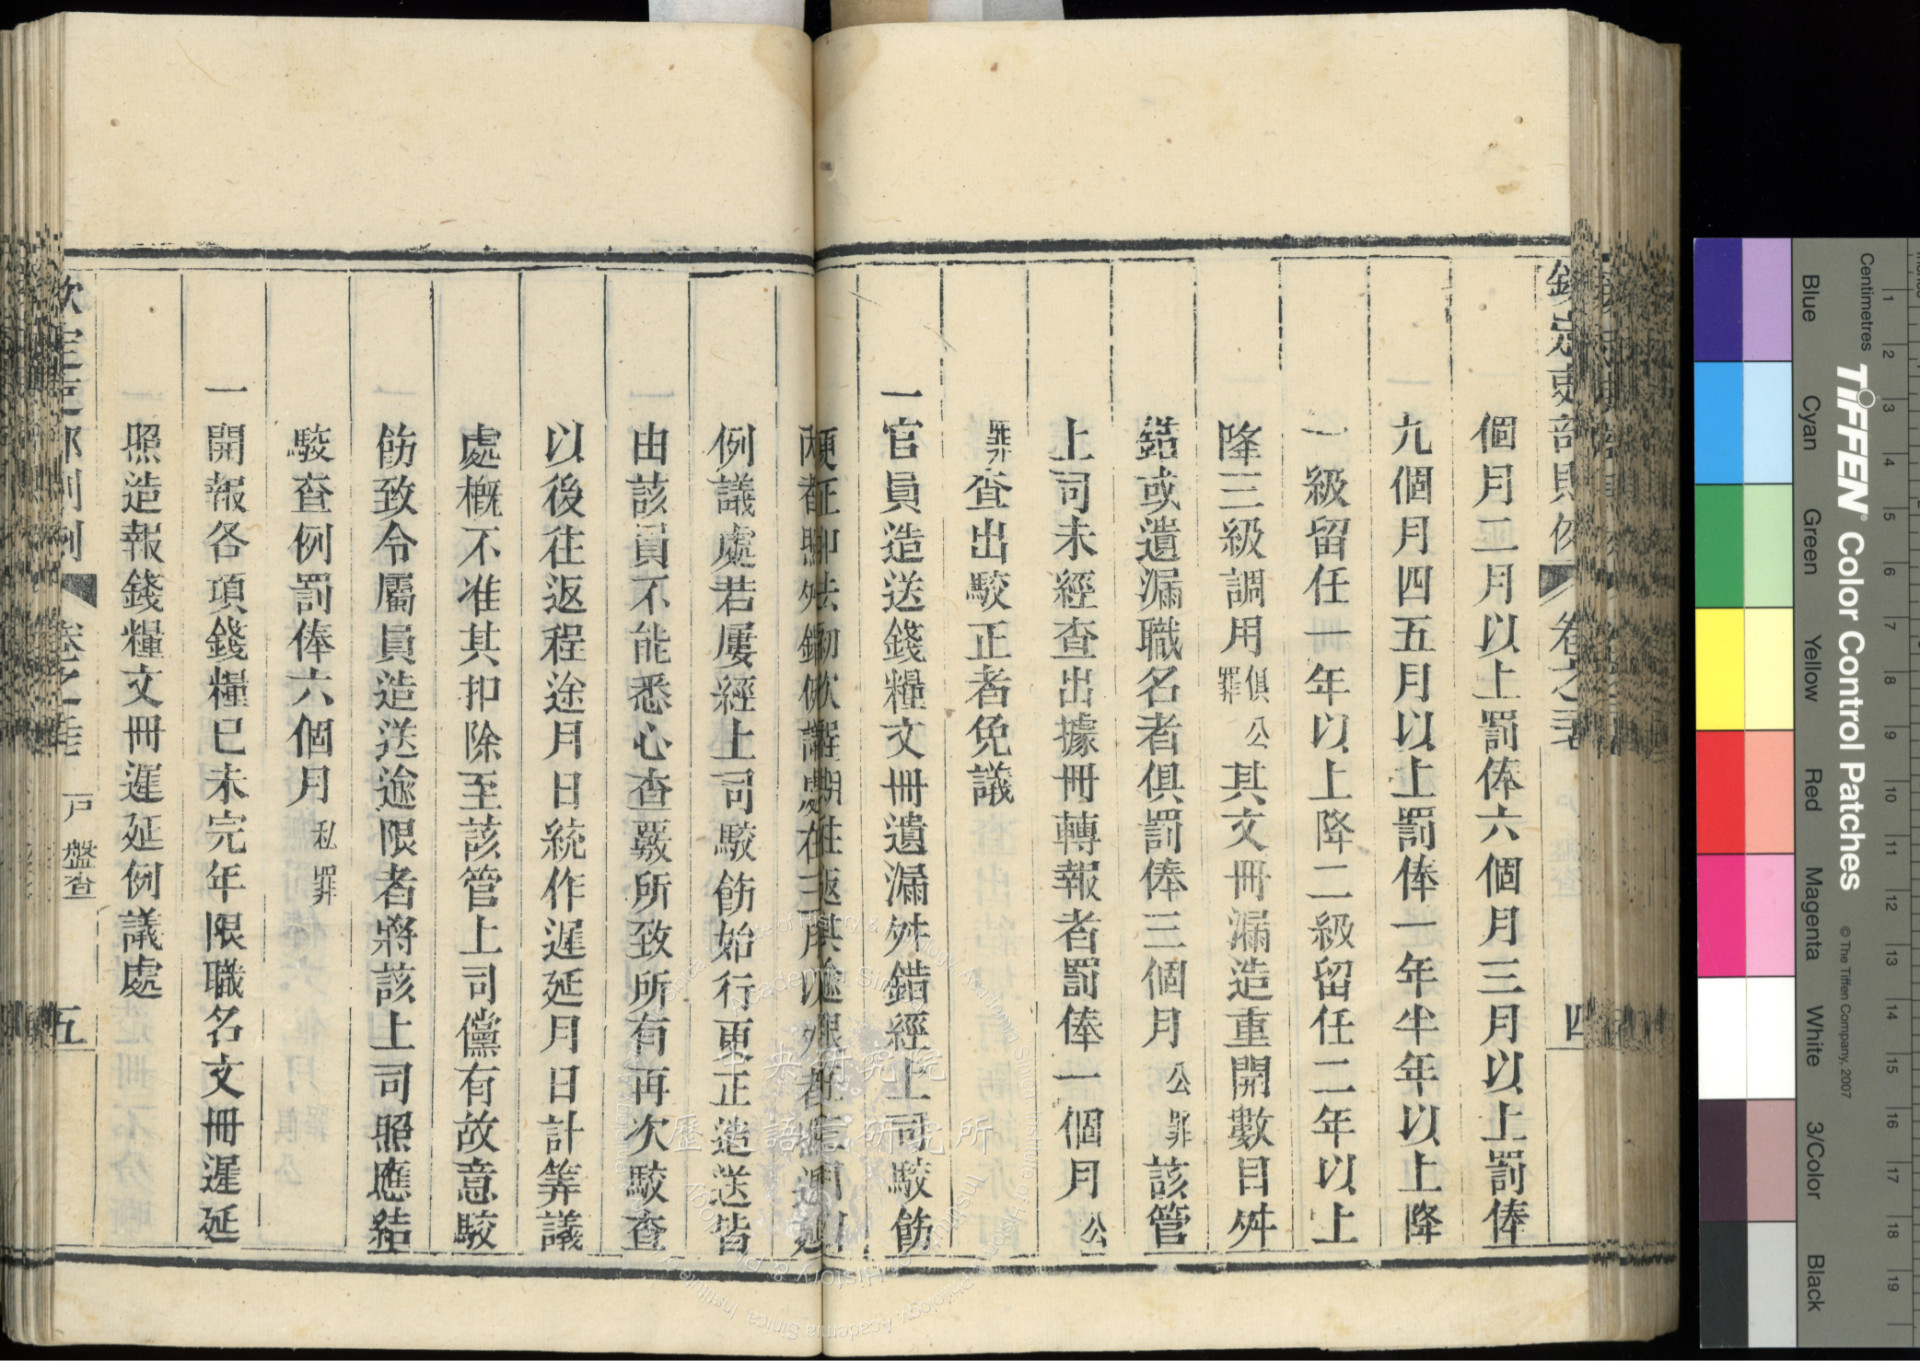 欽定吏部則例 卷之 四
個月二月以上罰俸六個月三月以上罰俸
九個月四五月以上罰俸一年半年以上降
一級留任一年以上降二級留任二年以上
降三級調用俱公罪其文冊漏造重開數目舛
錯或遺漏職名者俱罰俸三個月公罪該管
上司未經查出據冊轉報者罰俸一個月公
罪查出駁正者免議
一官員造送錢糧文冊遺漏舛錯經上司駁飭
例議處若屢經上司駁飭始行更正造送皆
由該員不能悉心查覈所致所有再次駁查
以後往返程途月日統作遲延月日計算議
處概不准其扣除至該管上司儻有故意駁
飭致令屬員造送逾限者將該上司照應結
駁查例罰俸六個月私罪
一開報各項錢糧已未完年限職名文冊遲延
照造報錢糧文冊遲延例議處
欽定吏部則例 卷之 戶 盤查 五
中央研究院
歷史語言研究所
Centimetres
TIFFEN Color Control Patches
© The Tiffen Company, 2007
Blue Cyan Green Yellow Red Magenta White 3/Color Black
1 2 3 4 5 6 7 8 9 10 11 12 13 14 15 16 17 18 19